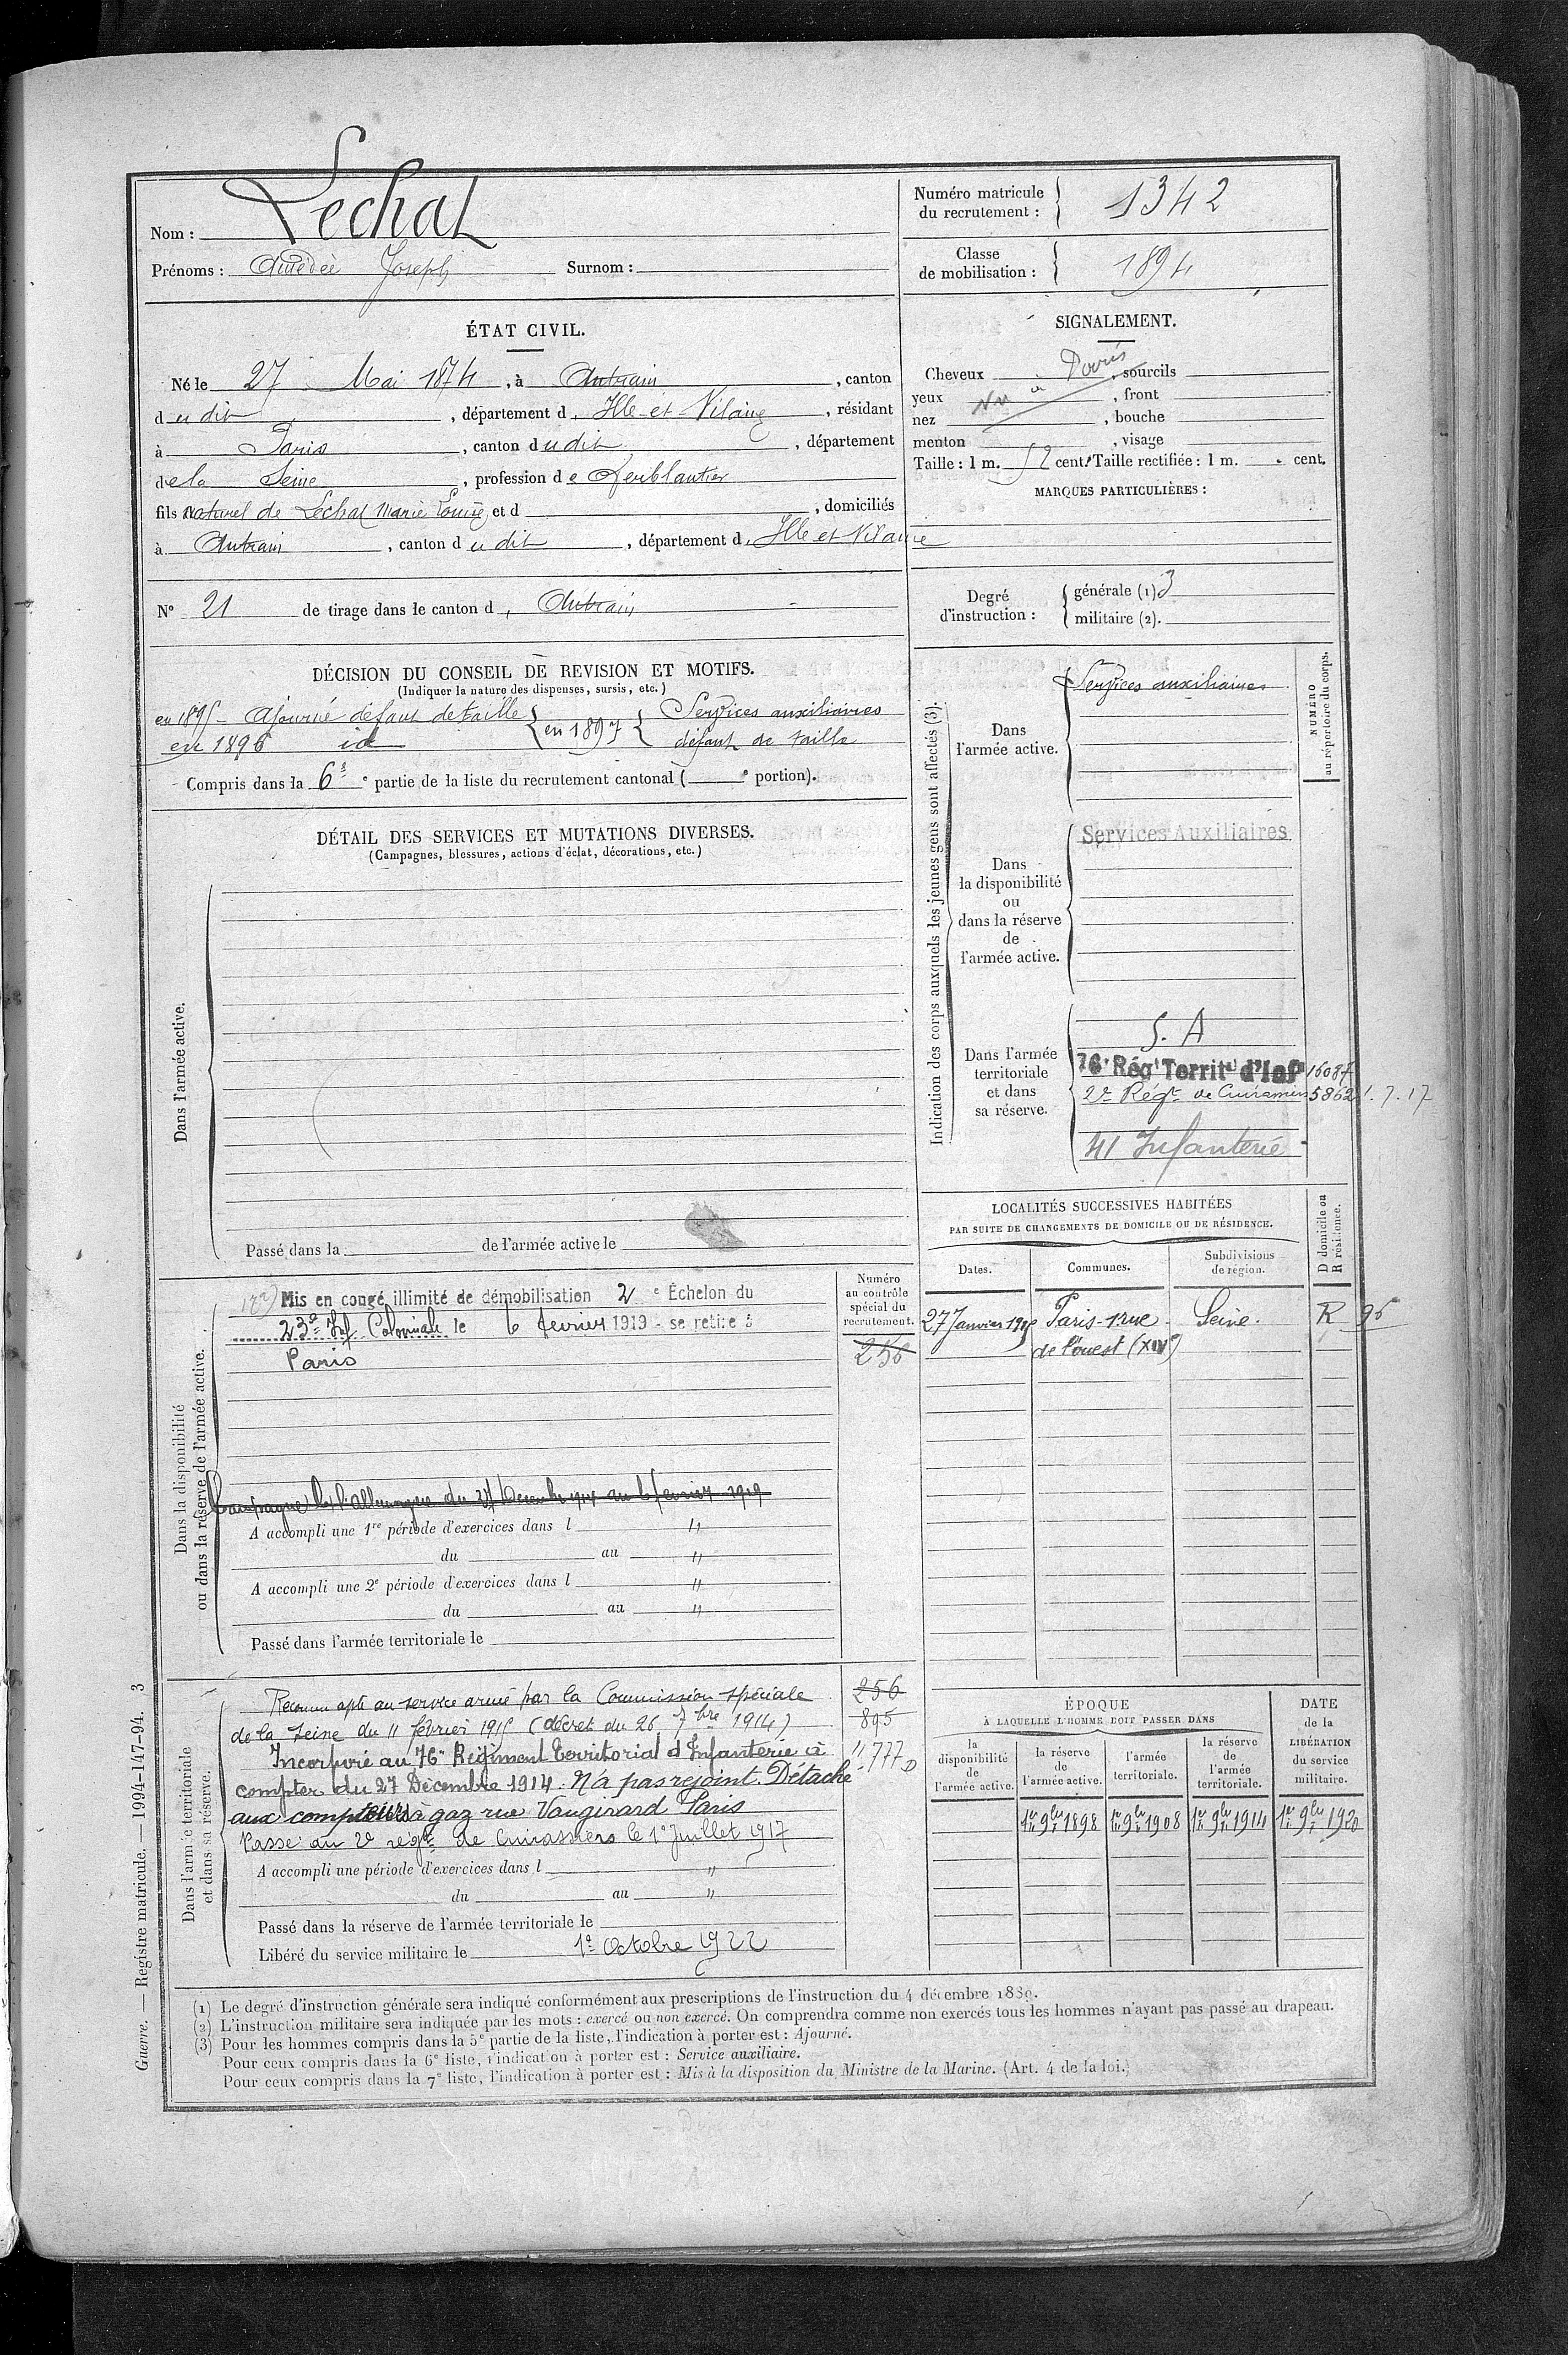 Nom : Lechat
Prénoms : Amédée Joseph Surnom :
Numéro matricule du recrutement : 1342
Classe de mobilisation : 1894
ÉTAT CIVIL.
Né le 27 Mai 1874, à Antrain, canton
du dit, département d'Ille-et-Vilaine, résidant
à Paris, canton du dit, département
de la Seine, profession de ferblantier
fils naturel de Lechat Marie Louise et d , domiciliés
à Antrain, canton du dit, département d'Ille et Vilaine
N° 21 de tirage dans le canton d'Antrain
SIGNALEMENT.
Cheveux , sourcils
yeux , front
nez , bouche
menton , visage
Vu à Paris
Taille : 1 m. 52 cent. Taille rectifiée : 1 m. cent.
MARQUES PARTICULIÈRES :
Degré d'instruction : générale (1) 3
militaire (2).
DÉCISION DU CONSEIL DE REVISION ET MOTIFS.
(Indiquer la nature des dispenses, sursis, etc.)
en 1895 - Ajourné défaut de taille
en 1896 id
en 1897
Services auxiliaires
défaut de taille
Compris dans la 6e partie de la liste du recrutement cantonal ( e portion).
DÉTAIL DES SERVICES ET MUTATIONS DIVERSES.
(Campagnes, blessures, actions d'éclat, décorations, etc.)
Dans l'armée active.
Passé dans la de l'armée active le
Indication des corps auxquels les jeunes gens sont affectés (3).
NUMÉRO au répertoire du corps.
Dans l'armée active.
Services auxiliaires
Dans la disponibilité ou dans la réserve de l'armée active.
Services Auxiliaires
Dans l'armée territoriale et dans sa réserve.
S. A
76e Régt Territal d'Infie 16087
2e Régt de Cuirassiers 5862 1.7.17
41 Infanterie
LOCALITÉS SUCCESSIVES HABITÉES
PAR SUITE DE CHANGEMENTS DE DOMICILE OU DE RÉSIDENCE.
Dates.
Communes.
Subdivisions de région.
D domicile ou R résidence.
27 Janvier Paris-1 rue Seine. R 95
de l'ouest (XIV)
Dans la disponibilité ou dans la réserve de l'armée active.
Numéro au contrôle spécial du recrutement.
Mis en congé illimité de démobilisation 2 e Échelon du
23e Inf Coloniale le 6 février 1919 - se retire à
Paris
256
Campagne c/ l'Allemagne du 27 Décembre 1914 au 6 février 1919
A accompli une 1re période d'exercices dans l "
du au "
A accompli une 2e période d'exercices dans l "
du au "
Passé dans l'armée territoriale le
Dans l'armée territoriale et dans sa réserve.
Reconnu apte au service armé par la Commission spéciale
de la Seine du 11 février 1915 (décret du 26 7bre 1914)
Incorporé au 76e Régiment Territorial d'Infanterie à
compter du 27 Décembre 1914. N'a pas rejoint. Détaché
aux compteurs à gaz rue Vaugirard Paris
Passé au 2e régt de Cuirassiers le 1er Juillet 1917
256
895
11777 D
A accompli une période d'exercices dans l "
du au "
Passé dans la réserve de l'armée territoriale le
Libéré du service militaire le 1er Octobre 1922
ÉPOQUE
À LAQUELLE L'HOMME DOIT PASSER DANS
la disponibilité de l'armée active.
la réserve de l'armée active.
l'armée territoriale.
la réserve de l'armée territoriale.
DATE de la LIBÉRATION du service militaire.
1er 9bre 1898
1er 9bre 1908
1er 9bre 1914
1er 9bre 1920
(1) Le degré d'instruction générale sera indiqué conformément aux prescriptions de l'instruction du 4 décembre 1889.
(2) L'instruction militaire sera indiquée par les mots : exercé ou non exercé. On comprendra comme non exercés tous les hommes n'ayant pas passé au drapeau.
(3) Pour les hommes compris dans la 5e partie de la liste, l'indication à porter est : Ajourné.
Pour ceux compris dans la 6e liste, l'indication à porter est : Service auxiliaire.
Pour ceux compris dans la 7e liste, l'indication à porter est : Mis à la disposition du Ministre de la Marine. (Art. 4 de la loi.)
Guerre. — Registre matricule. — 1994-147-94. 3